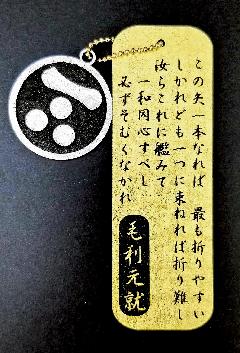 この矢一本なれば 最も折りやすい
しかれども一つに束ねれば折り難し
汝らこれに鑑みて
一和同心すべし
必ずそむくなかれ
毛利元就